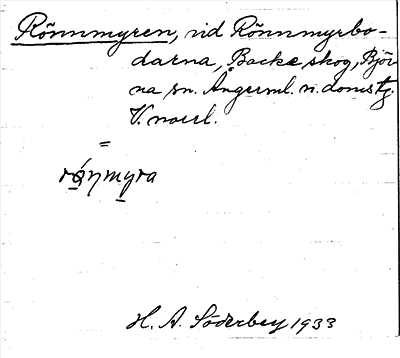 Rönnmyren, vid Rönnmyrbo-
darna, Backe skog, Björ
na sn. Ångerml. n. doms tg.
V. norrl.
=
H. A. Söderbey 1933